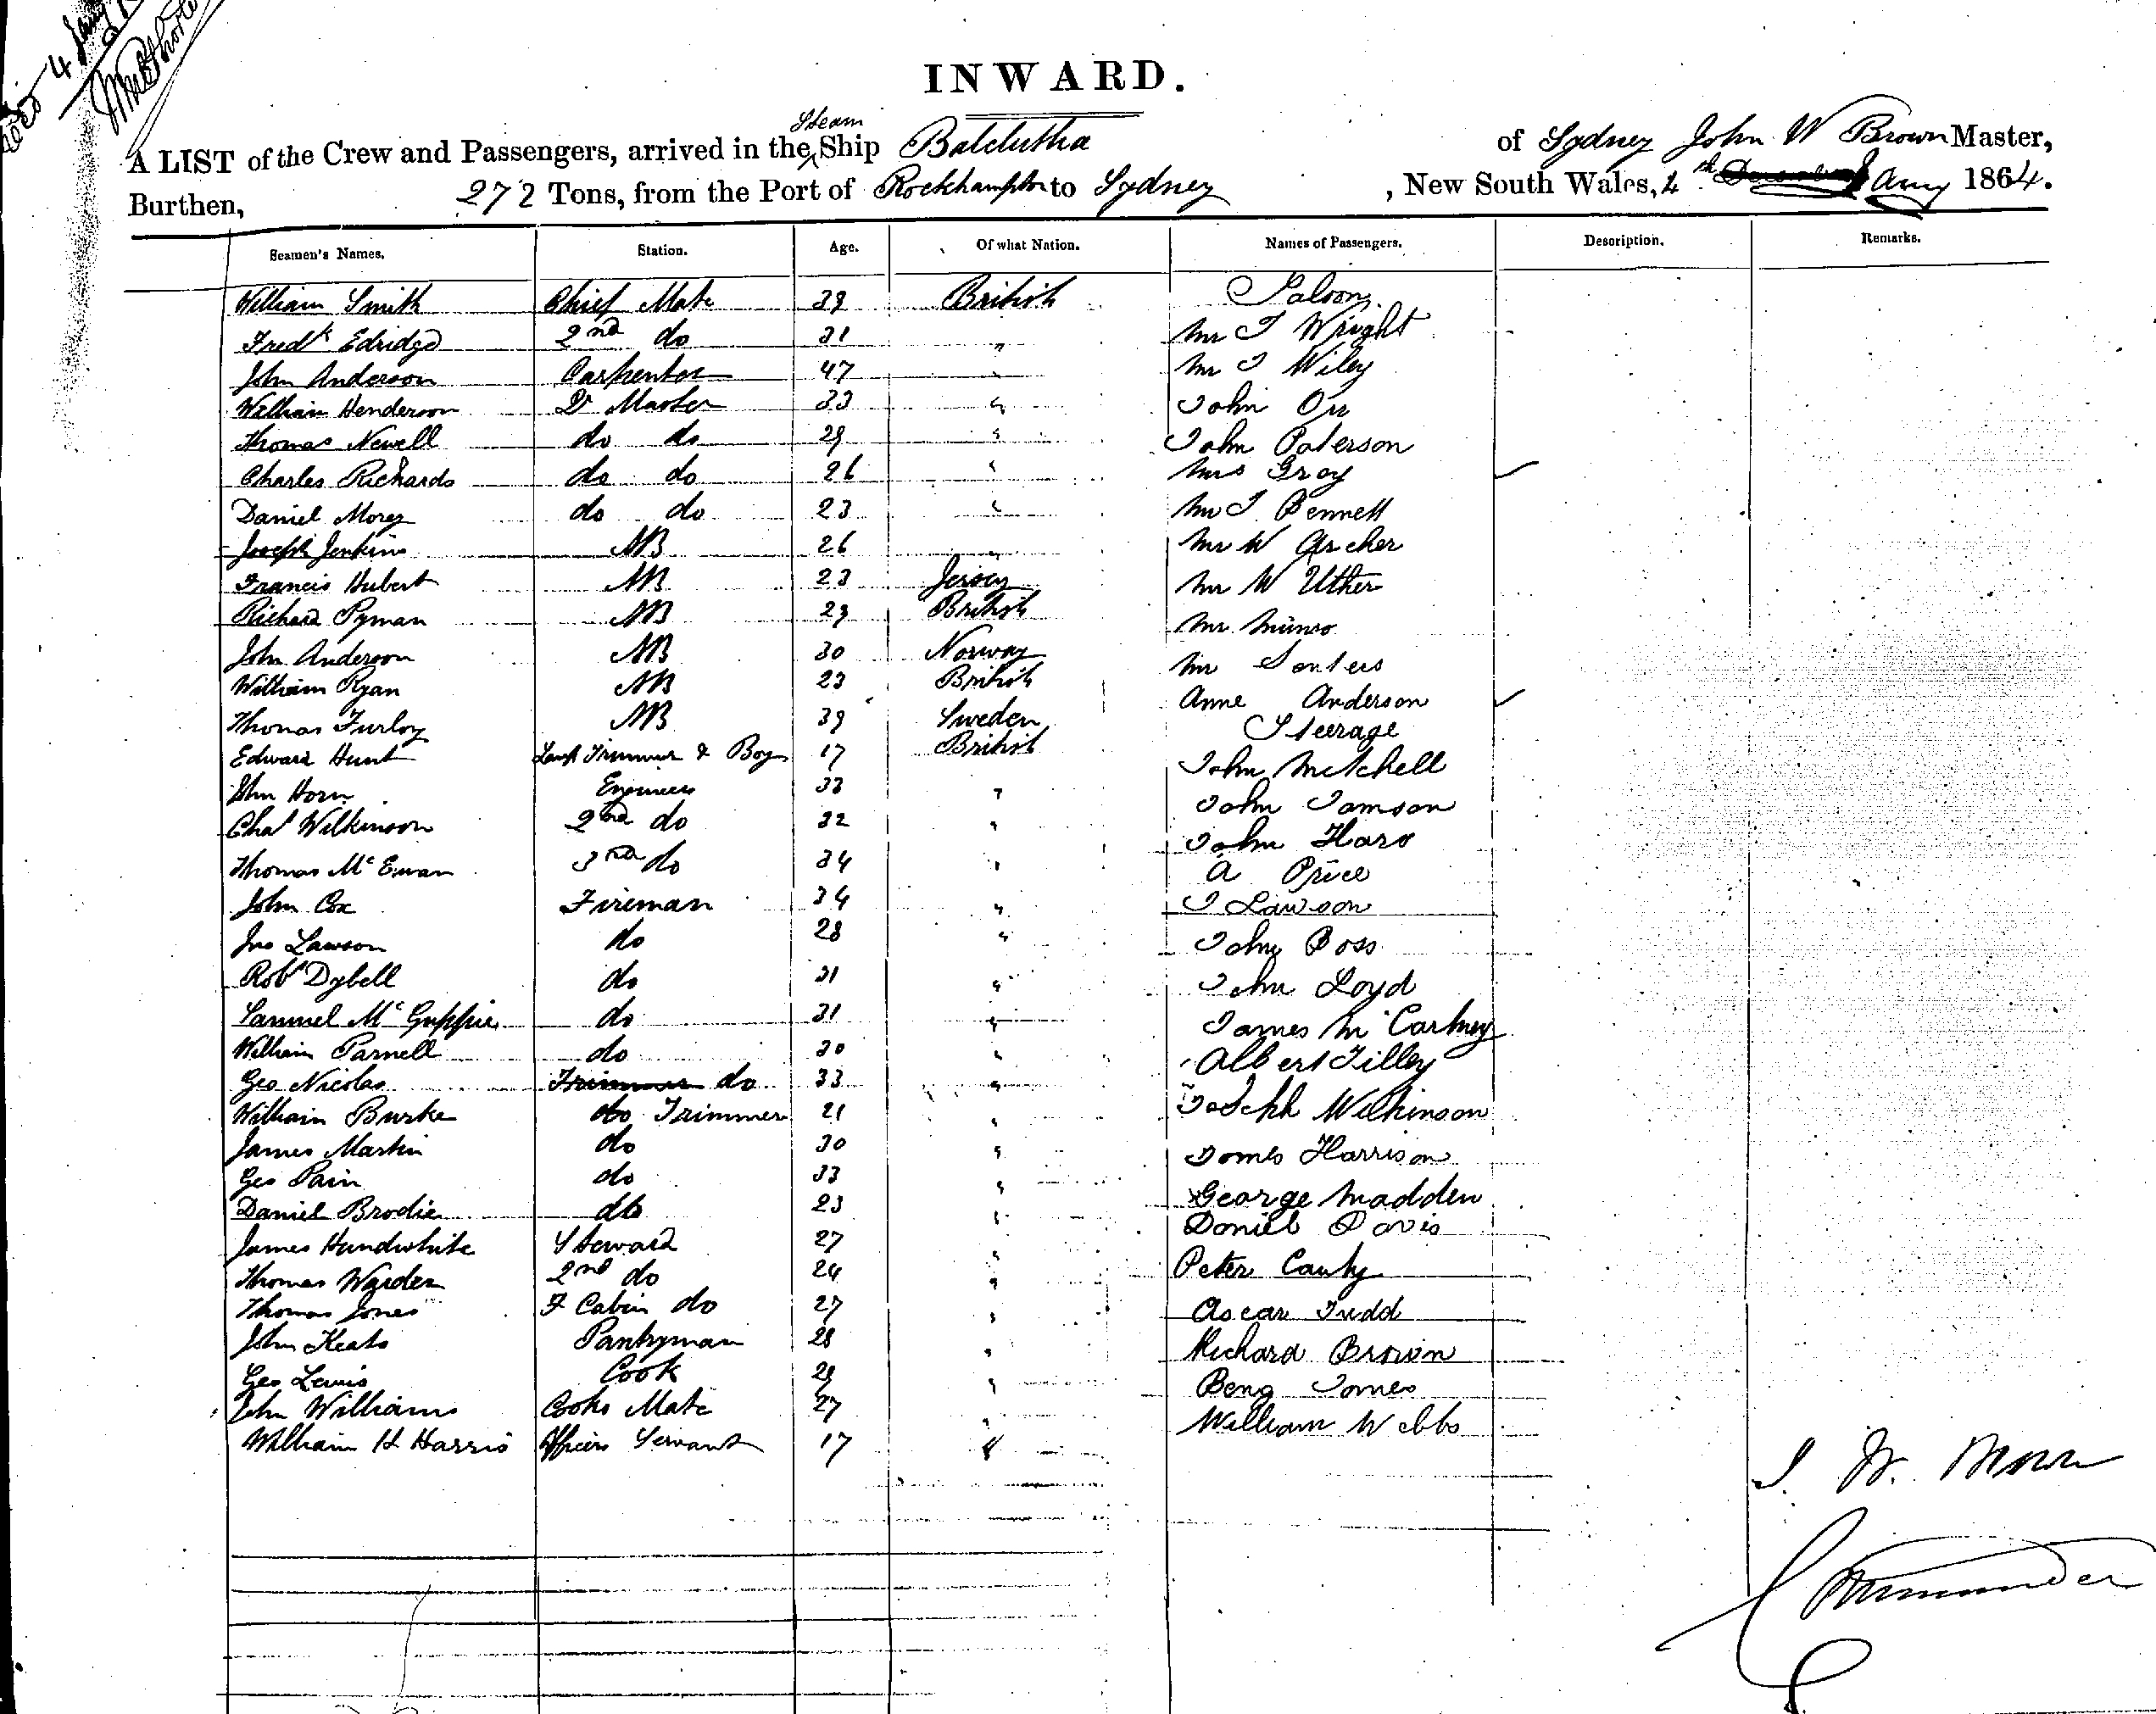 4 Jany
INWARD.
Steam
A LIST of the Crew and Passengers, arrived in the Ship Balclutha of Sydney John W Brown Master,
Burthen, 272 Tons, from the Port of Rockhampton to Sydney , New South Wales, 4th Jany 1864.
Seamen's Names. Station. Age. Of what Nation. Names of Passengers. Description. Remarks.
William Smith Chief Mate 39 British Saloon.
Fredk Edridge 2nd do 31 " Mr J Wright
John Anderson Carpenter 47 " Mr J Wiley
William Henderson Qr Master 33 " John Orr
Thomas Newell do do 29 " John Paterson
Charles Richards do do 26 " Mrs Gray
Daniel Morez do do 23 " Mr J Bennett
Joseph Jenkins AB 26 " Mr W Archer
Francis Hubert AB 23 Jersey Mr W Uther
Richard Pyman AB 29 British Mr Munro
John Anderson AB 30 Norway Mr Senters
William Ryan AB 23 British Anne Anderson
Thomas Furloy AB 39 Sweden Steerage
Edward Hunt Lamp Trimmer & Boy 17 British John Mitchell
John Horn Engineer 33 " John Jamson
Chas Wilkinson 2nd do 32 " John Haro
Thomas McEwan 3rd do 34 " A Price
John Cox Fireman 34 " J Lawson
Jno Lawson do 28 " John Boss
Robt Dybell do 31 " John Loyd
Samuel McGuppie do 31 " James McCartney
William Parnell do 30 " Albert Tilley
Geo Nicolas Trimmer do 33 " Joseph Wilkinson
William Burke do Trimmer 21 " James Harrison
James Martin do 30 " George Madden
Geo Pain do 33 " Daniel Davis
Daniel Brodie do 23 " Peter Canty
James Handwhite Steward 27 " Oscar Judd
Thomas Warden 2nd do 24 " Richard Brown
Thomas Jones F Cabin do 27 " Benj James
John Keats Pantryman 28 " William Webbs
Geo Lewis Cook 29 "
John Williams Cooks Mate 27 "
William H Harris Officers Servant 17 "
J. W. Brown
Commander